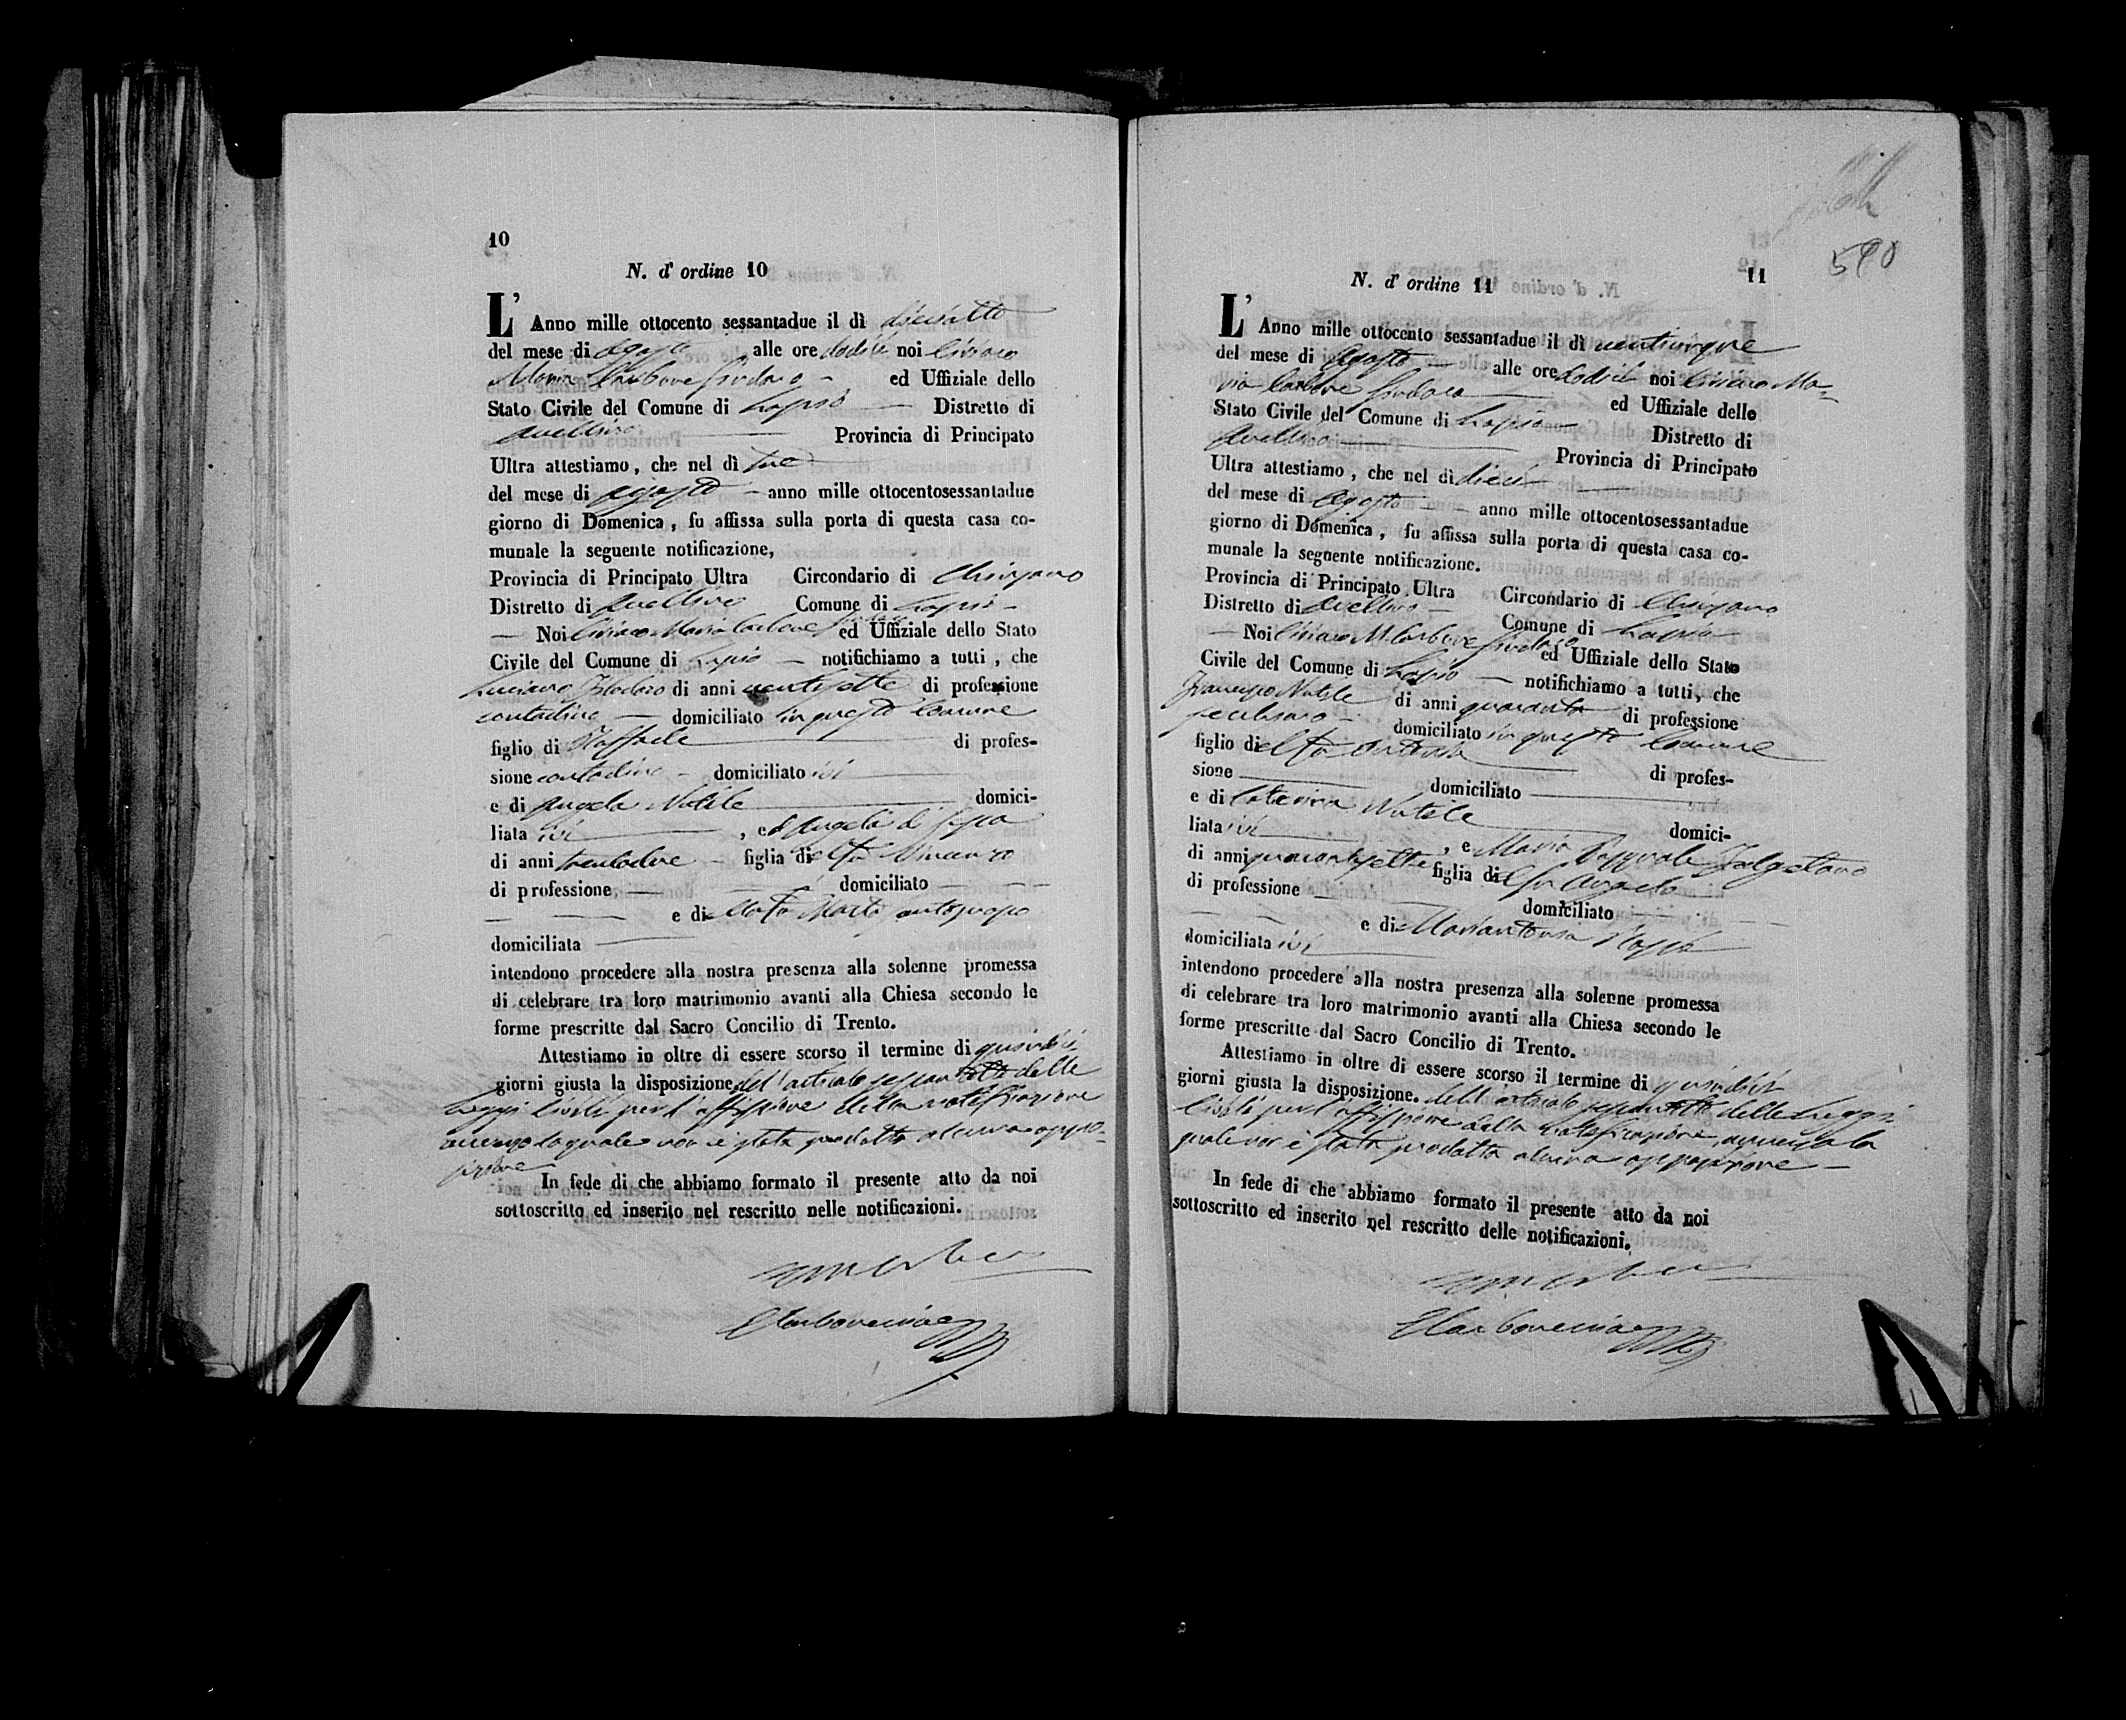 10
N. d' ordine 10
L' Anno mille ottocento sessantadue il dì diciotto
del mese di agosto alle ore dodici noi Ciriaco
Maria Carbone Sindaco ed Uffiziale dello
Stato Civile del Comune di Lapio Distretto di
Avellino Provincia di Principato
Ultra attestiamo, che nel dì tre
del mese di agosto anno mille ottocentosessantadue
giorno di Domenica, fu affissa sulla porta di questa casa co-
munale la seguente notificazione,
Provincia di Principato Ultra Circondario di Chiusano
Distretto di Avellino Comune di Lapio
Noi Ciriaco Maria Carbone Sindaco ed Uffiziale dello Stato
Civile del Comune di Lapio notifichiamo a tutti, che
Luciano di anni ventisette di professione
contadino domiciliato in questo Comune
figlio di Raffaele di profes-
sione contadino domiciliato ivi
e di Angela Natile domici-
liata ivi , ed Angela
di anni trentadue figlia del fu Vincenzo
di professione domiciliato
e di Marta
domiciliata
intendono procedere alla nostra presenza alla solenne promessa
di celebrare tra loro matrimonio avanti alla Chiesa secondo le
forme prescritte dal Sacro Concilio di Trento.
Attestiamo in oltre di essere scorso il termine di quindici
giorni giusta la disposizione dell'articolo sessantotto delle
Leggi Civili per l'affissione della notificazione
avverso la quale non è stata prodotta alcuna oppo-
sizione
In fede di che abbiamo formato il presente atto da noi
sottoscritto ed inserito nel rescritto nelle notificazioni.
590
11
N. d' ordine 11
L' Anno mille ottocento sessantadue il dì venticinque
del mese di Agosto alle ore dodici noi Ciriaco Ma-
ria Carbone Sindaco ed Uffiziale dello
Stato Civile del Comune di Lapio Distretto di
Avellino Provincia di Principato
Ultra attestiamo, che nel dì dieci
del mese di agosto anno mille ottocentosessantadue
giorno di Domenica, fu affissa sulla porta di questa casa co-
munale la seguente notificazione.
Provincia di Principato Ultra Circondario di Chiusano
Distretto di Avellino Comune di Lapio
Noi Ciriaco M. Carbone Sindaco ed Uffiziale dello Stato
Civile del Comune di Lapio notifichiamo a tutti, che
Francesco Natile di anni quaranta di professione
domiciliato in questo Comune
figlio del fu Antonio di profes-
sione domiciliato
e di Caterina Natile domici-
liata ivi , e Maria Pasquale
di anni quarantasette figlia del fu Angelo
di professione domiciliato
e di Mariantonia
domiciliata ivi
intendono procedere alla nostra presenza alla solenne promessa
di celebrare tra loro matrimonio avanti alla Chiesa secondo le
forme prescritte dal Sacro Concilio di Trento.
Attestiamo in oltre di essere scorso il termine di quindici
giorni giusta la disposizione. dell'articolo sessantotto delle Leggi
Civili per l'affissione della notificazione, avverso la
quale non è stata prodotta alcuna opposizione
In fede di che abbiamo formato il presente atto da noi
sottoscritto ed inserito nel rescritto delle notificazioni.